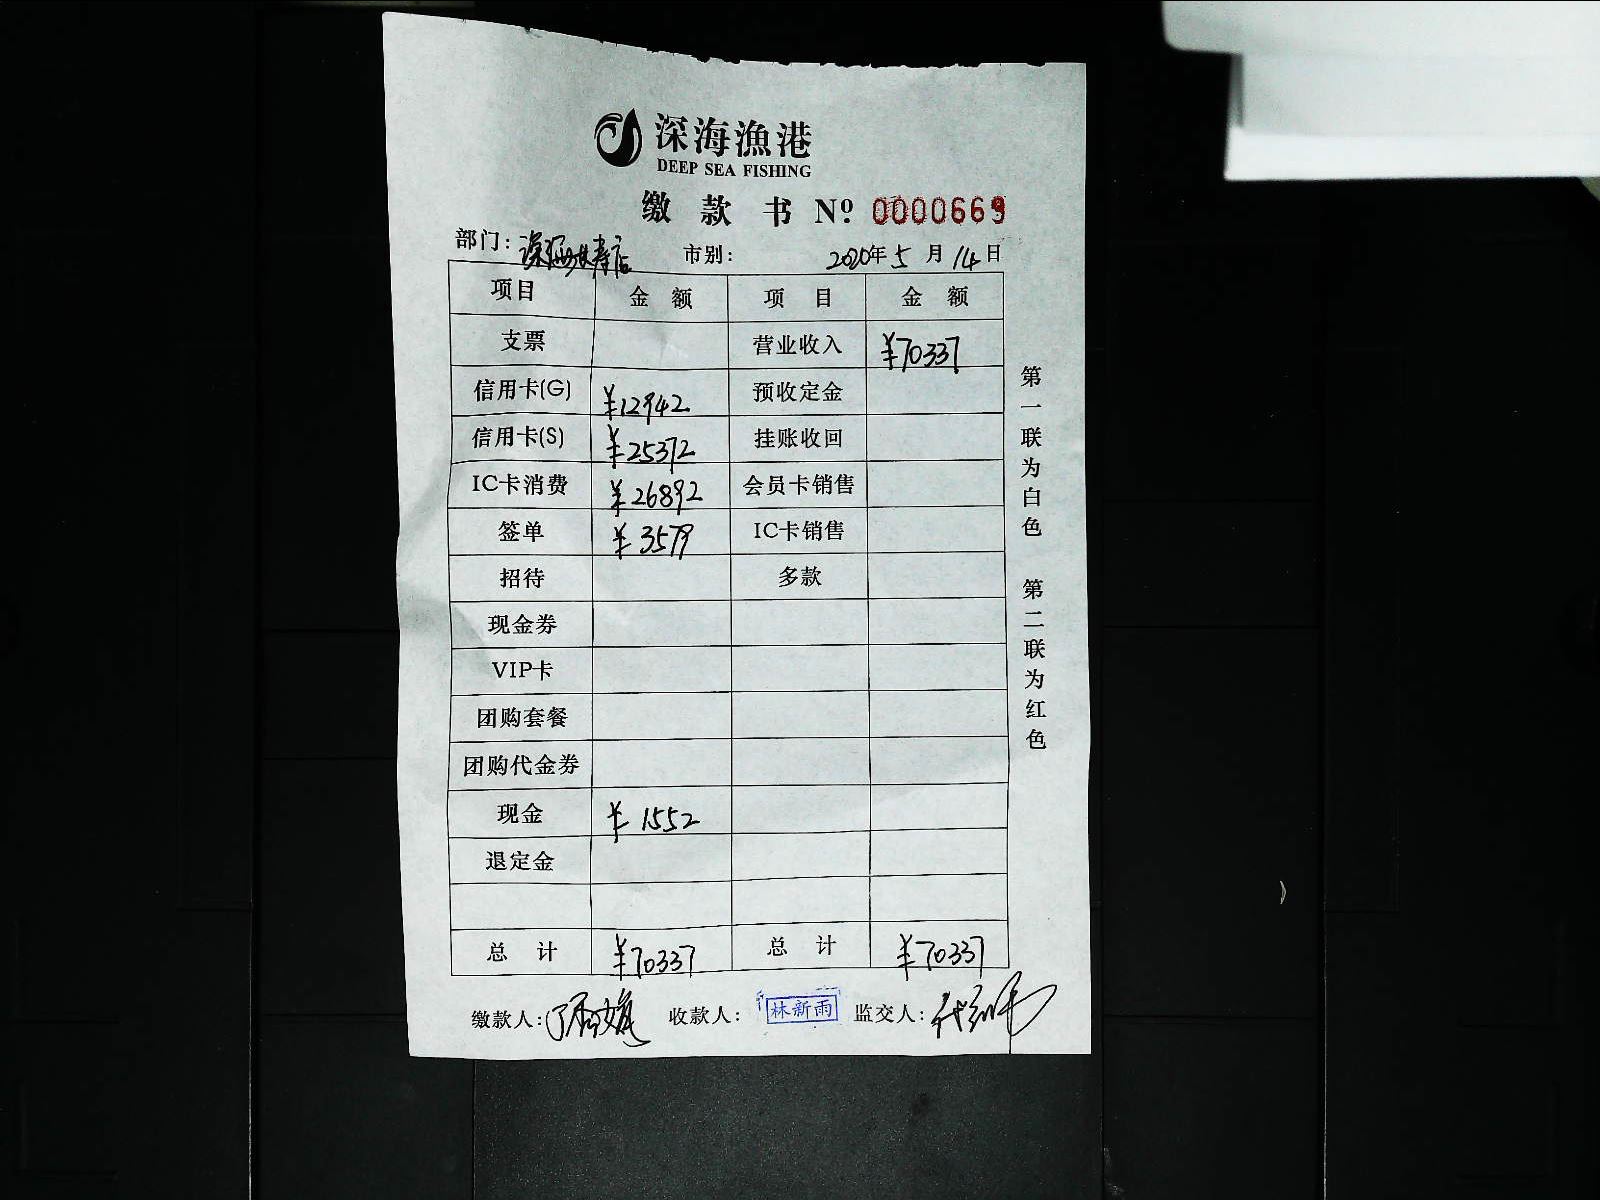 深海漁港
DEEP SEA FISHING
缴款书 Nº 0000669
部门: 市别: 2020年5月14日
项目 金额 项目 金额
支票 营业收入 ¥70337
信用卡(G) ¥12942 预收定金
信用卡(S) ¥25372 挂账收回
IC卡消费 ¥26892 会员卡销售
签单 ¥3579 IC卡销售
招待 多款
现金券
VIP卡
团购套餐
团购代金券
现金 ¥1552
退定金
总计 ¥70337 总计 ¥70337
缴款人: 收款人: 林新雨 监交人:
第一联为白色 第二联为红色